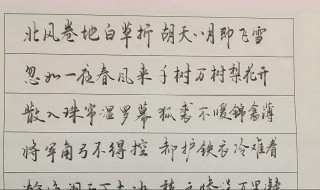 北风卷地白草折 胡天八月即飞雪
忽如一夜春风来 千树万树梨花开
散入珠帘湿罗幕 狐裘不暖锦衾薄
将军角弓不得控 都护铁衣冷难着